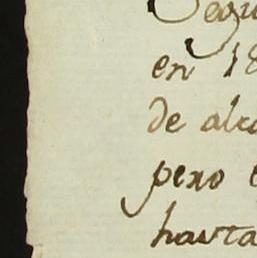 Segu
en 18
de alca
pero
hasta